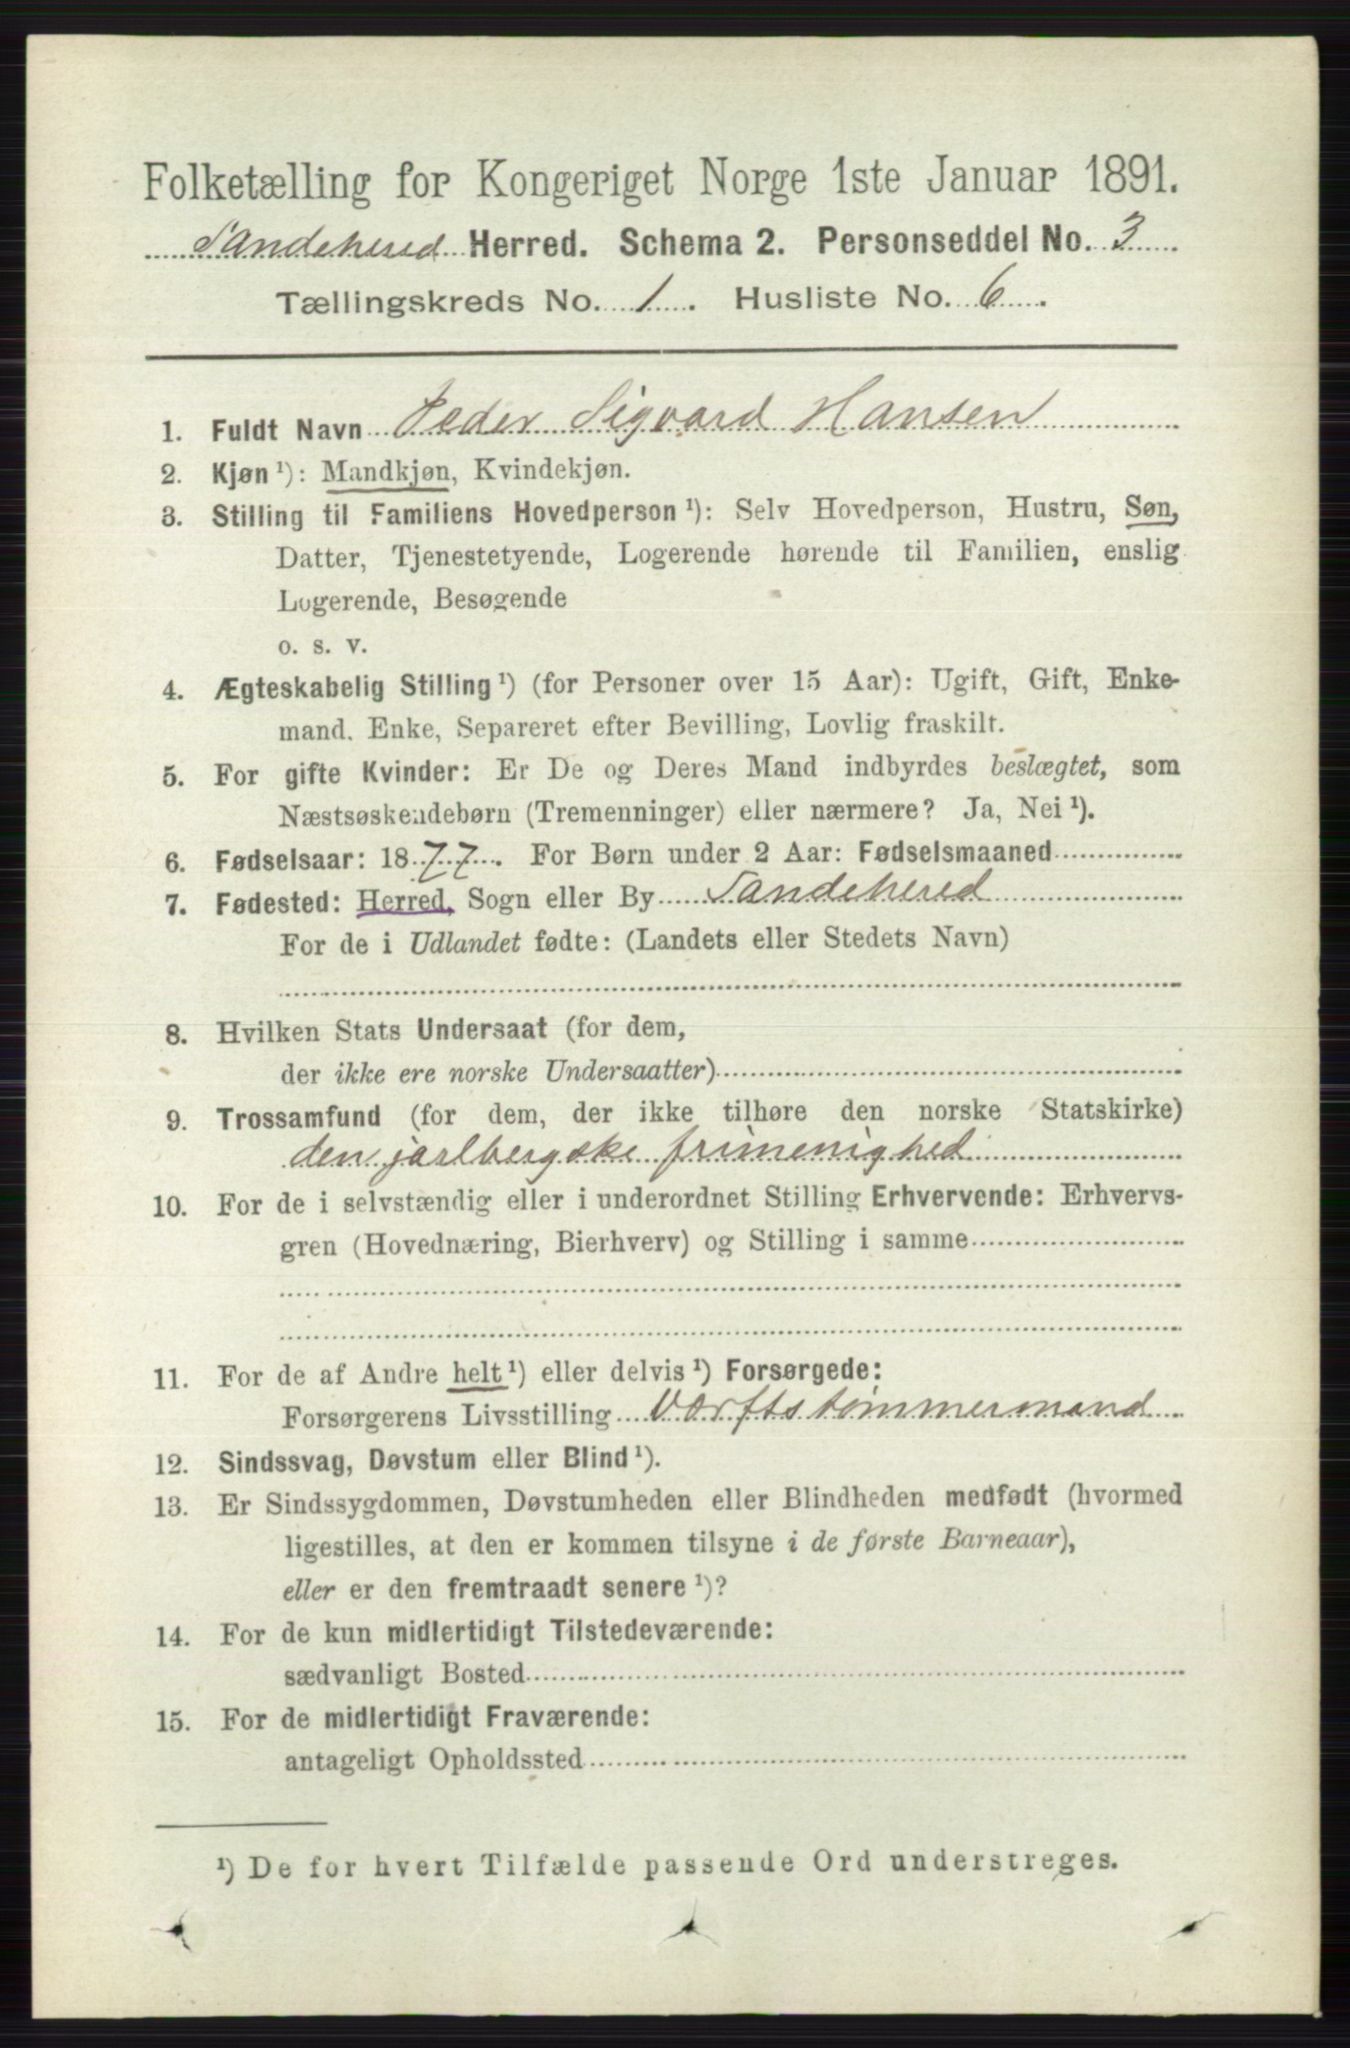 Folketælling for Kongeriget Norge 1ste Januar 1891.
Sandehered Herred. Schema 2. Personseddel No. 3
Tællingskreds No. 1. Husliste No. 6.
1. Fuldt Navn Peder Sigvard Hansen
2. Kjøn ¹): Mandkjøn, Kvindekjøn.
3. Stilling til Familiens Hovedperson ¹): Selv Hovedperson, Hustru, Søn,
Datter, Tjenestetyende, Logerende hørende til Familien, enslig
Logerende, Besøgende
o. s. v.
4. Ægteskabelig Stilling ¹) (for Personer over 15 Aar): Ugift, Gift, Enke-
mand. Enke, Separeret efter Bevilling, Lovlig fraskilt.
5. For gifte Kvinder: Er De og Deres Mand indbyrdes beslægtet, som
Næstsøskendebørn (Tremenninger) eller nærmere? Ja, Nei ¹).
6. Fødselsaar: 1877. For Børn under 2 Aar: Fødselsmaaned
7. Fødested: Herred, Sogn eller By Sandehered
For de i Udlandet fødte: (Landets eller Stedets Navn)
8. Hvilken Stats Undersaat (for dem,
der ikke ere norske Undersaatter)
9. Trossamfund (for dem, der ikke tilhøre den norske Statskirke)
den jarlbergske frimenighed
10. For de i selvstændig eller i underordnet Stilling Erhvervende: Erhvervs-
gren (Hovednæring, Bierhverv) og Stilling i samme
11. For de af Andre helt ¹) eller delvis ¹) Forsørgede:
Forsørgerens Livsstilling Værftstømmermand
12. Sindssvag, Døvstum eller Blind ¹).
13. Er Sindssygdommen, Døvstumheden eller Blindheden medfødt (hvormed
ligestilles, at den er kommen tilsyne i de første Barneaar),
eller er den fremtraadt senere ¹)?
14. For de kun midlertidigt Tilstedeværende:
sædvanligt Bosted
15. For de midlertidigt Fraværende:
antageligt Opholdssted
¹) De for hvert Tilfælde passende Ord understreges.